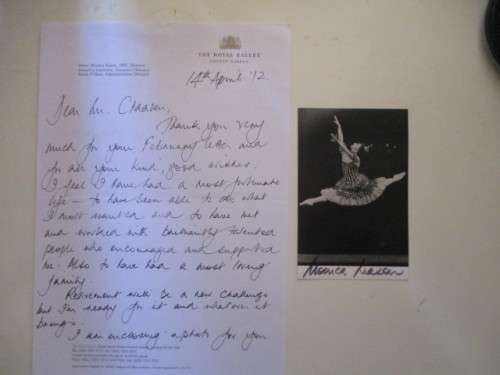 THE ROYAL BALLET
14th April '12
Dear Mr.
Thank you very
much for your February letter and
for all your kind, good wishes.
I feel I have had a most fortunate
life – to have been able to do what
I most wanted and to have met
and worked with talented
people who encouraged and supported
me. Also to have had a most loving
family.
Retirement will be a new challenge
but I'm ready for it and whatever it
brings.
I am enclosing a photo for you
Monica Mason